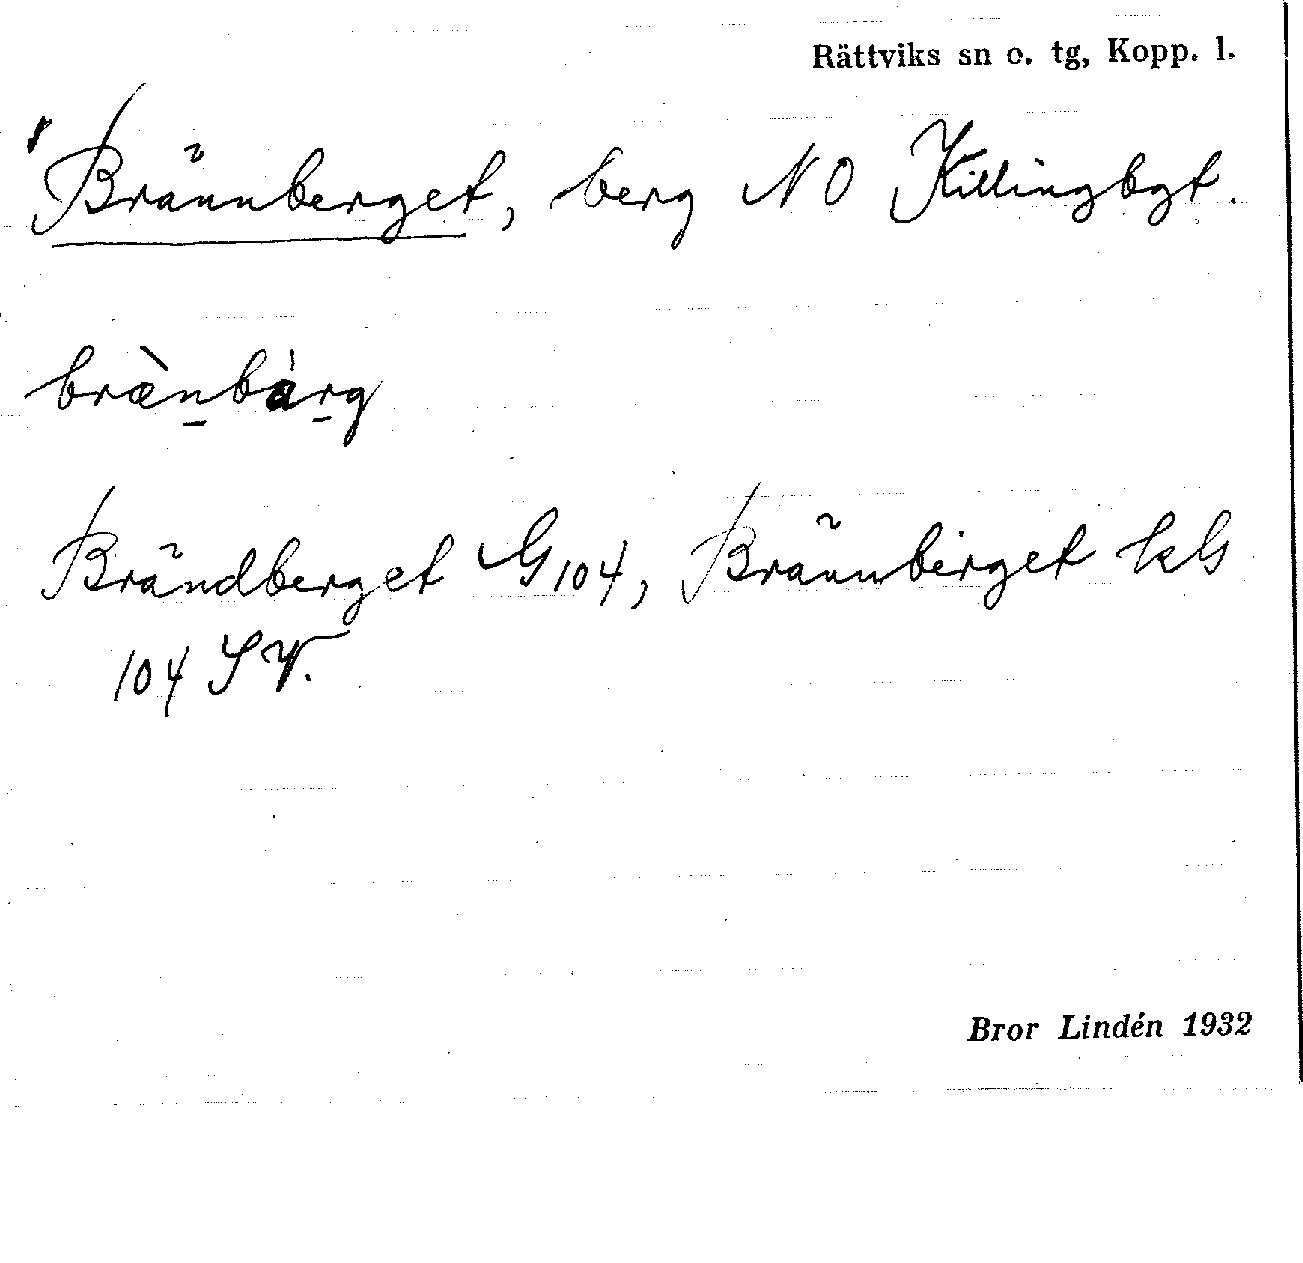 Rättviks sn o. tg, Kopp. l.
Brännberget, berg NO Killingbgt.
bræ̀n̠bàr̠g
Brändberget G104, Brännbärget kG
104 SV.
Bror Lindén 1932